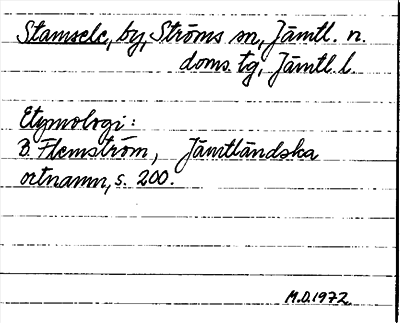 Stamsele, by, Ströms sn, Jämtl. n.
doms. tg, Jämtl. l.
Etymologi:
B. Flemström, Jämtländska
ortnamn, s. 200.
M.O.1972